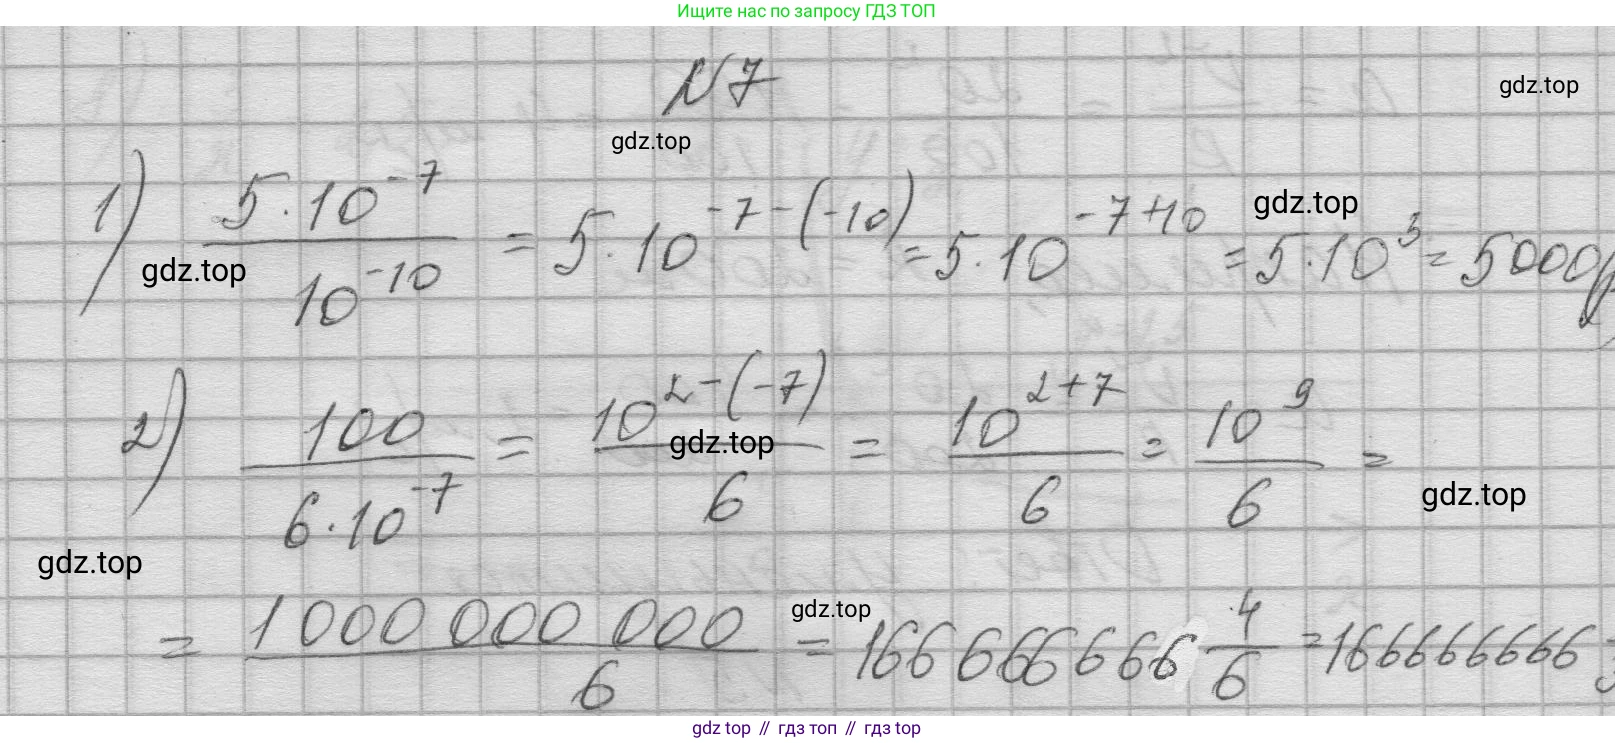 Ищите нас по запросу ГДЗ ТОП
№7
gdz.top
gdz.top
1) 5·10^-7 / 10^-10 = 5·10^-7-(-10) = 5·10^-7+10 = 5·10^3 = 5000р
gdz.top
gdz.top
2) 100 / 6·10^-7 = 10^2-(-7) / 6 = 10^2+7 / 6 = 10^9 / 6 =
gdz.top
gdz.top
gdz.top
= 1 000 000 000 / 6 = 166 666 666 4/6 = 166666666
gdz.top
gdz top // гдз топ // гдз top